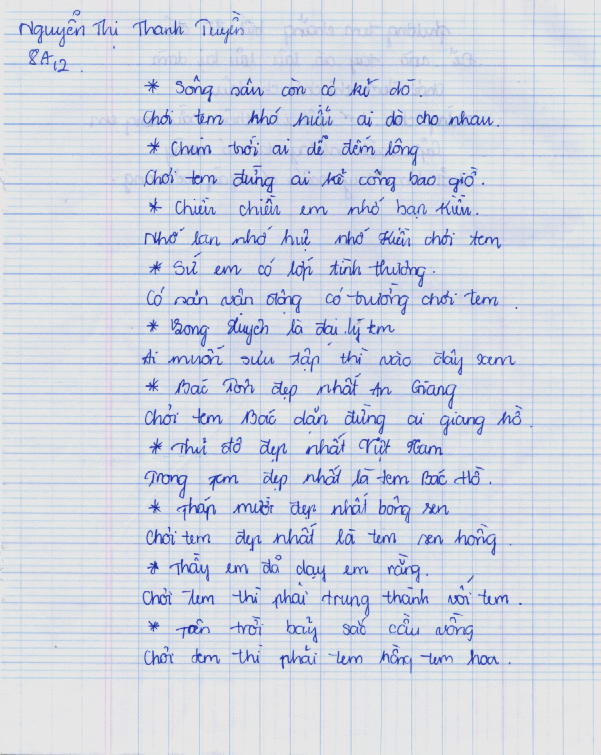 Nguyễn Thị Thanh Tuyền
8A12
* Sông sâu còn có kẻ dò
Chơi tem khó hiểu ai dò cho nhau.
* Chim trời ai dể đếm lông
Chơi tem đừng ai kể công bao giờ.
* Chiều chiều em nhớ bạn Kiều.
Nhớ lan nhớ huệ nhớ Kiều chơi tem
* Sứ em có lớp tình thương.
Có sân vân động có trường chơi tem
* Bong Huych là đại lý tem
Ai muốn sưu tập thì vào đây xem
* Bác Tôn đẹp nhất An Giang
Chơi tem Bác dặn đừng ai giang hồ.
* Thủ đô đẹp nhất Việt Nam
Trong tem đẹp nhất là tem Bác Hồ.
* Tháp mười đẹp nhất bông sen
Chơi tem đẹp nhất là tem sen hồng.
* Thầy em đả dạy em rằng.
Chơi tem thì phải trung thành với tem.
* Trên trời bảy sắc cầu vồng
Chơi tem thì phải tem hồng tem hoa.